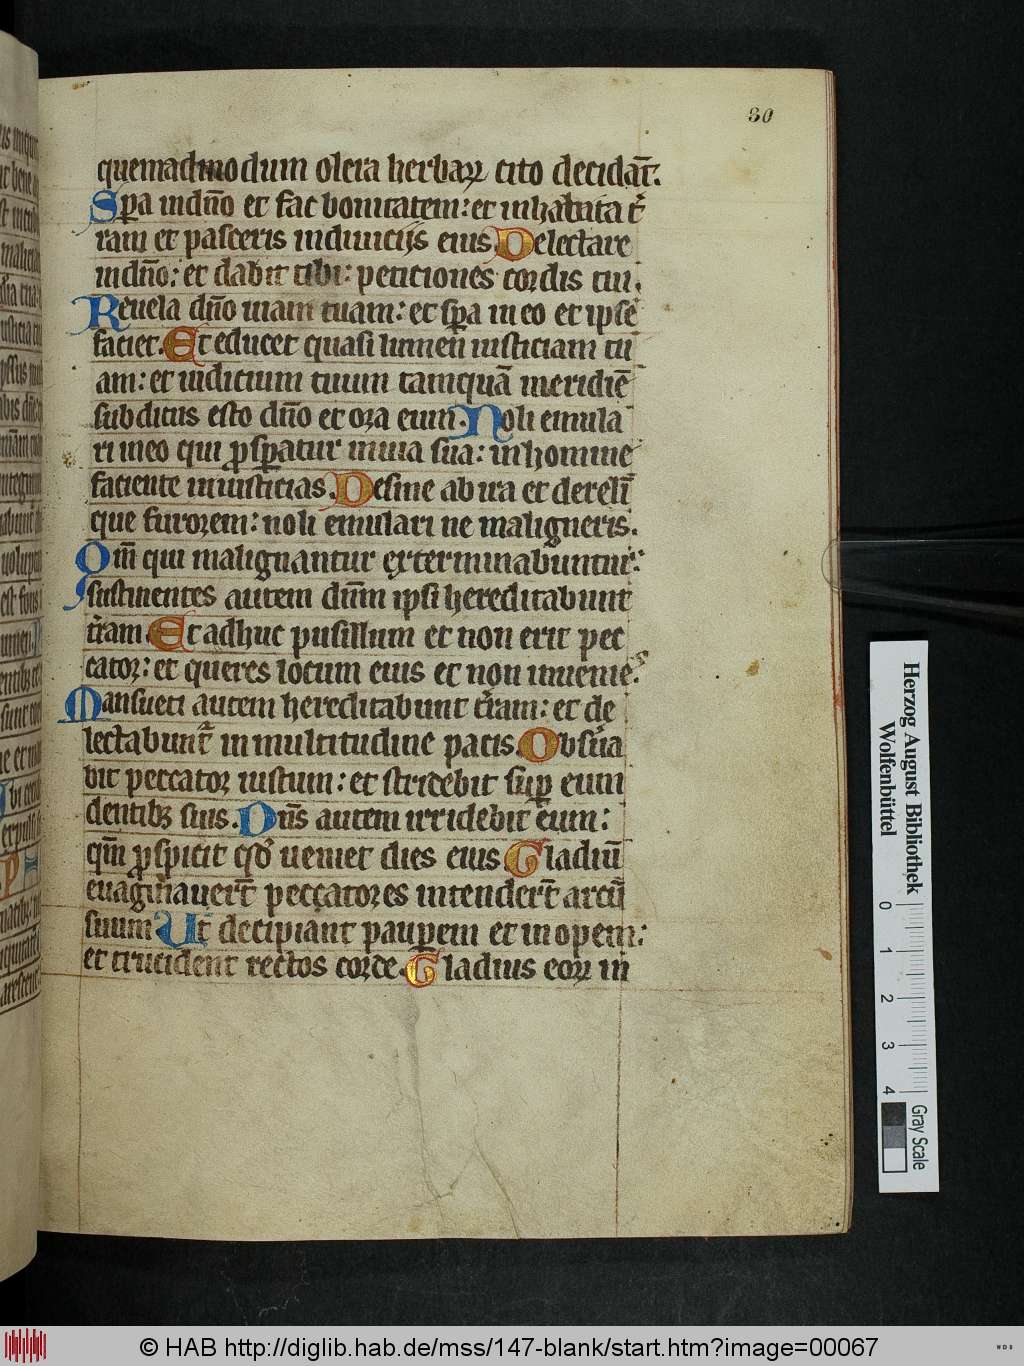 30
quemadmodum olera herbaꝝ cito decidāt.
Sꝑa indn̄o et fac bonitatem: et inhabita t̄
ram et pasceris indiuicijs eius Delectare
indn̄o: et dabit tibi: peticiones cordis tui.
Reuela dn̄o uiam tuam: et sꝑa in eo et ipse
faciet. Et educet quasi lumen iusticiam tu
am: et iudicium tuum tamquā meridiē
subditus esto dn̄o et ora eum. Noli emula
ri in eo qui ꝓsꝑatur in uia sua: in homine
faciente iniusticias. Desine ab ira et dereli
que furorem: noli emulari ne maligneris.
Qm̄ qui malignantur exterminabuntur:
sustinentes autem dn̄m ipsi hereditabunt
t̄ram Et adhuc pusillum et non erit pec
cator: et queres locum eius et non inuenies.
Mansueti autem hereditabunt t̄ram: et de
lectabunt̄ in multitudine pacis. Obs̄ua
bit peccator iustum: et stridebit suꝑ eum
dentibꝫ suis. Dn̄s autem irridebit eum:
qm̄ ꝓspicit qd̄ ueniet dies eius Gladiū
euaginauer̄t peccatores intender̄t arcū
suum Ut decipiant pauꝑem et inopem:
et trucident rectos corde. Gladius eoꝝ in
Herzog August Bibliothek
Wolfenbüttel
0 1 2 3 4
Gray Scale
© HAB http://diglib.hab.de/mss/147-blank/start.htm?image=00067